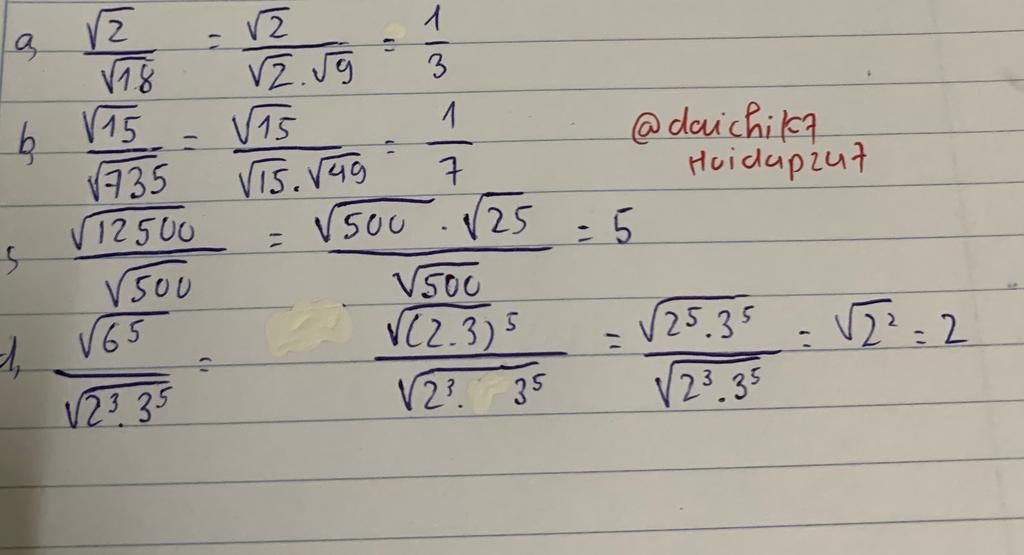 a, √2/√18 = √2/(√2.√9) = 1/3
b, √15/√735 = √15/(√15.√49) = 1/7
@daichik7
Hoidap247
s √12500/√500 = (√500 . √25)/√500 = 5
d, √6⁵/√(2³.3⁵) = √(2.3)⁵/√(2³.3⁵) = √(2⁵.3⁵)/√(2³.3⁵) = √2² = 2